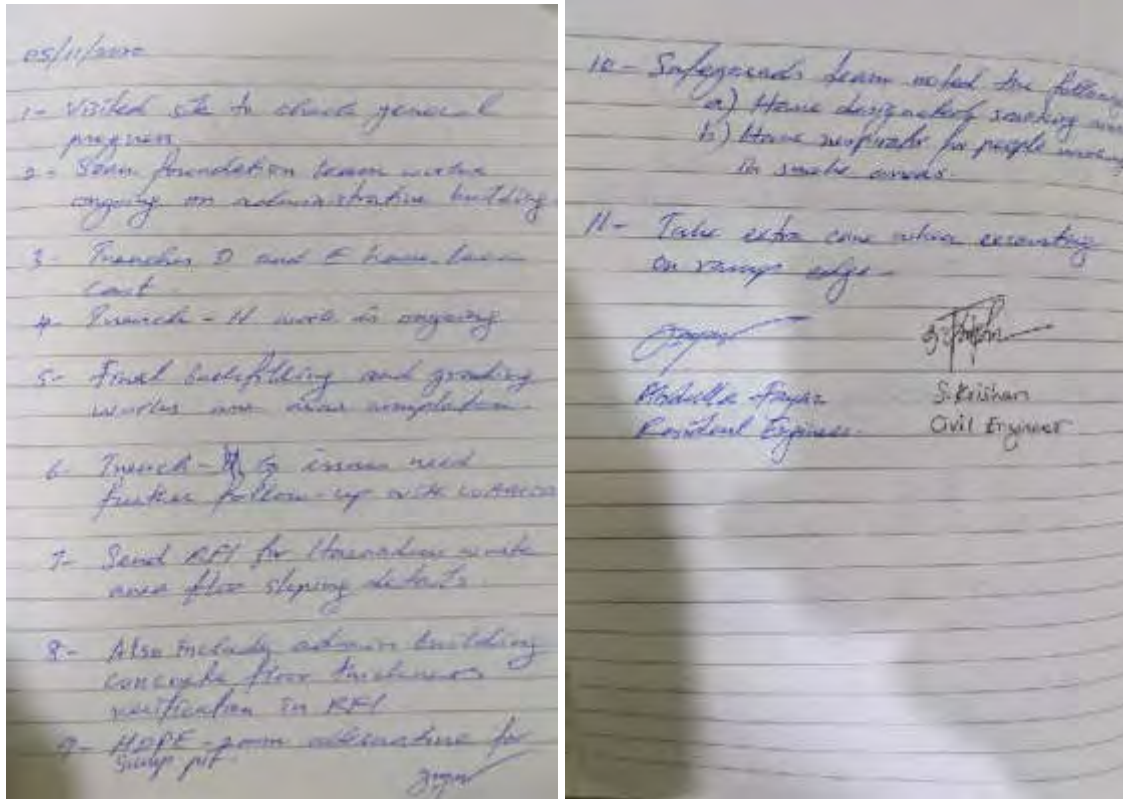 05/11/2020
1- Visited site to check general
progress
2- Seen foundation team works
ongoing on administrative building
3- Trenches D and E have been
cast.
4- Trench - H work is ongoing
5- Final backfilling and grading
works are near completion.
6- Trench - G issues need
further follow-up with WAMCO
7- Send RFI for Hazardous waste
area floor sloping details.
8- Also include admin building
concrete floor thickness
verification in RFI
9- HDPE - 2mm alternative for
Sump pit.
10- Safeguards team noted the following
a) Have designated smoking
b) Have respirator for people working
in smoke areas.
11- Take extra care when excavating
on ramp edge.
Abdulla Fayaz
S. Krishan
Resident Engineer.
Civil Engineer